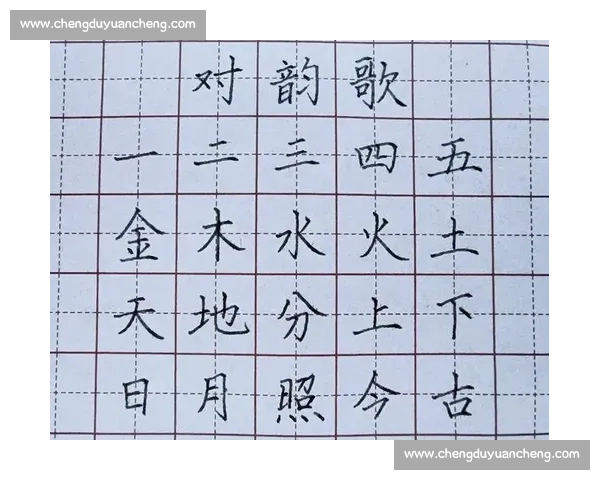 www.chengduyuancheng.com
对韵歌
一二三四五
金木水火土
天地分上下
日月照今古
www.chengduyuancheng.com